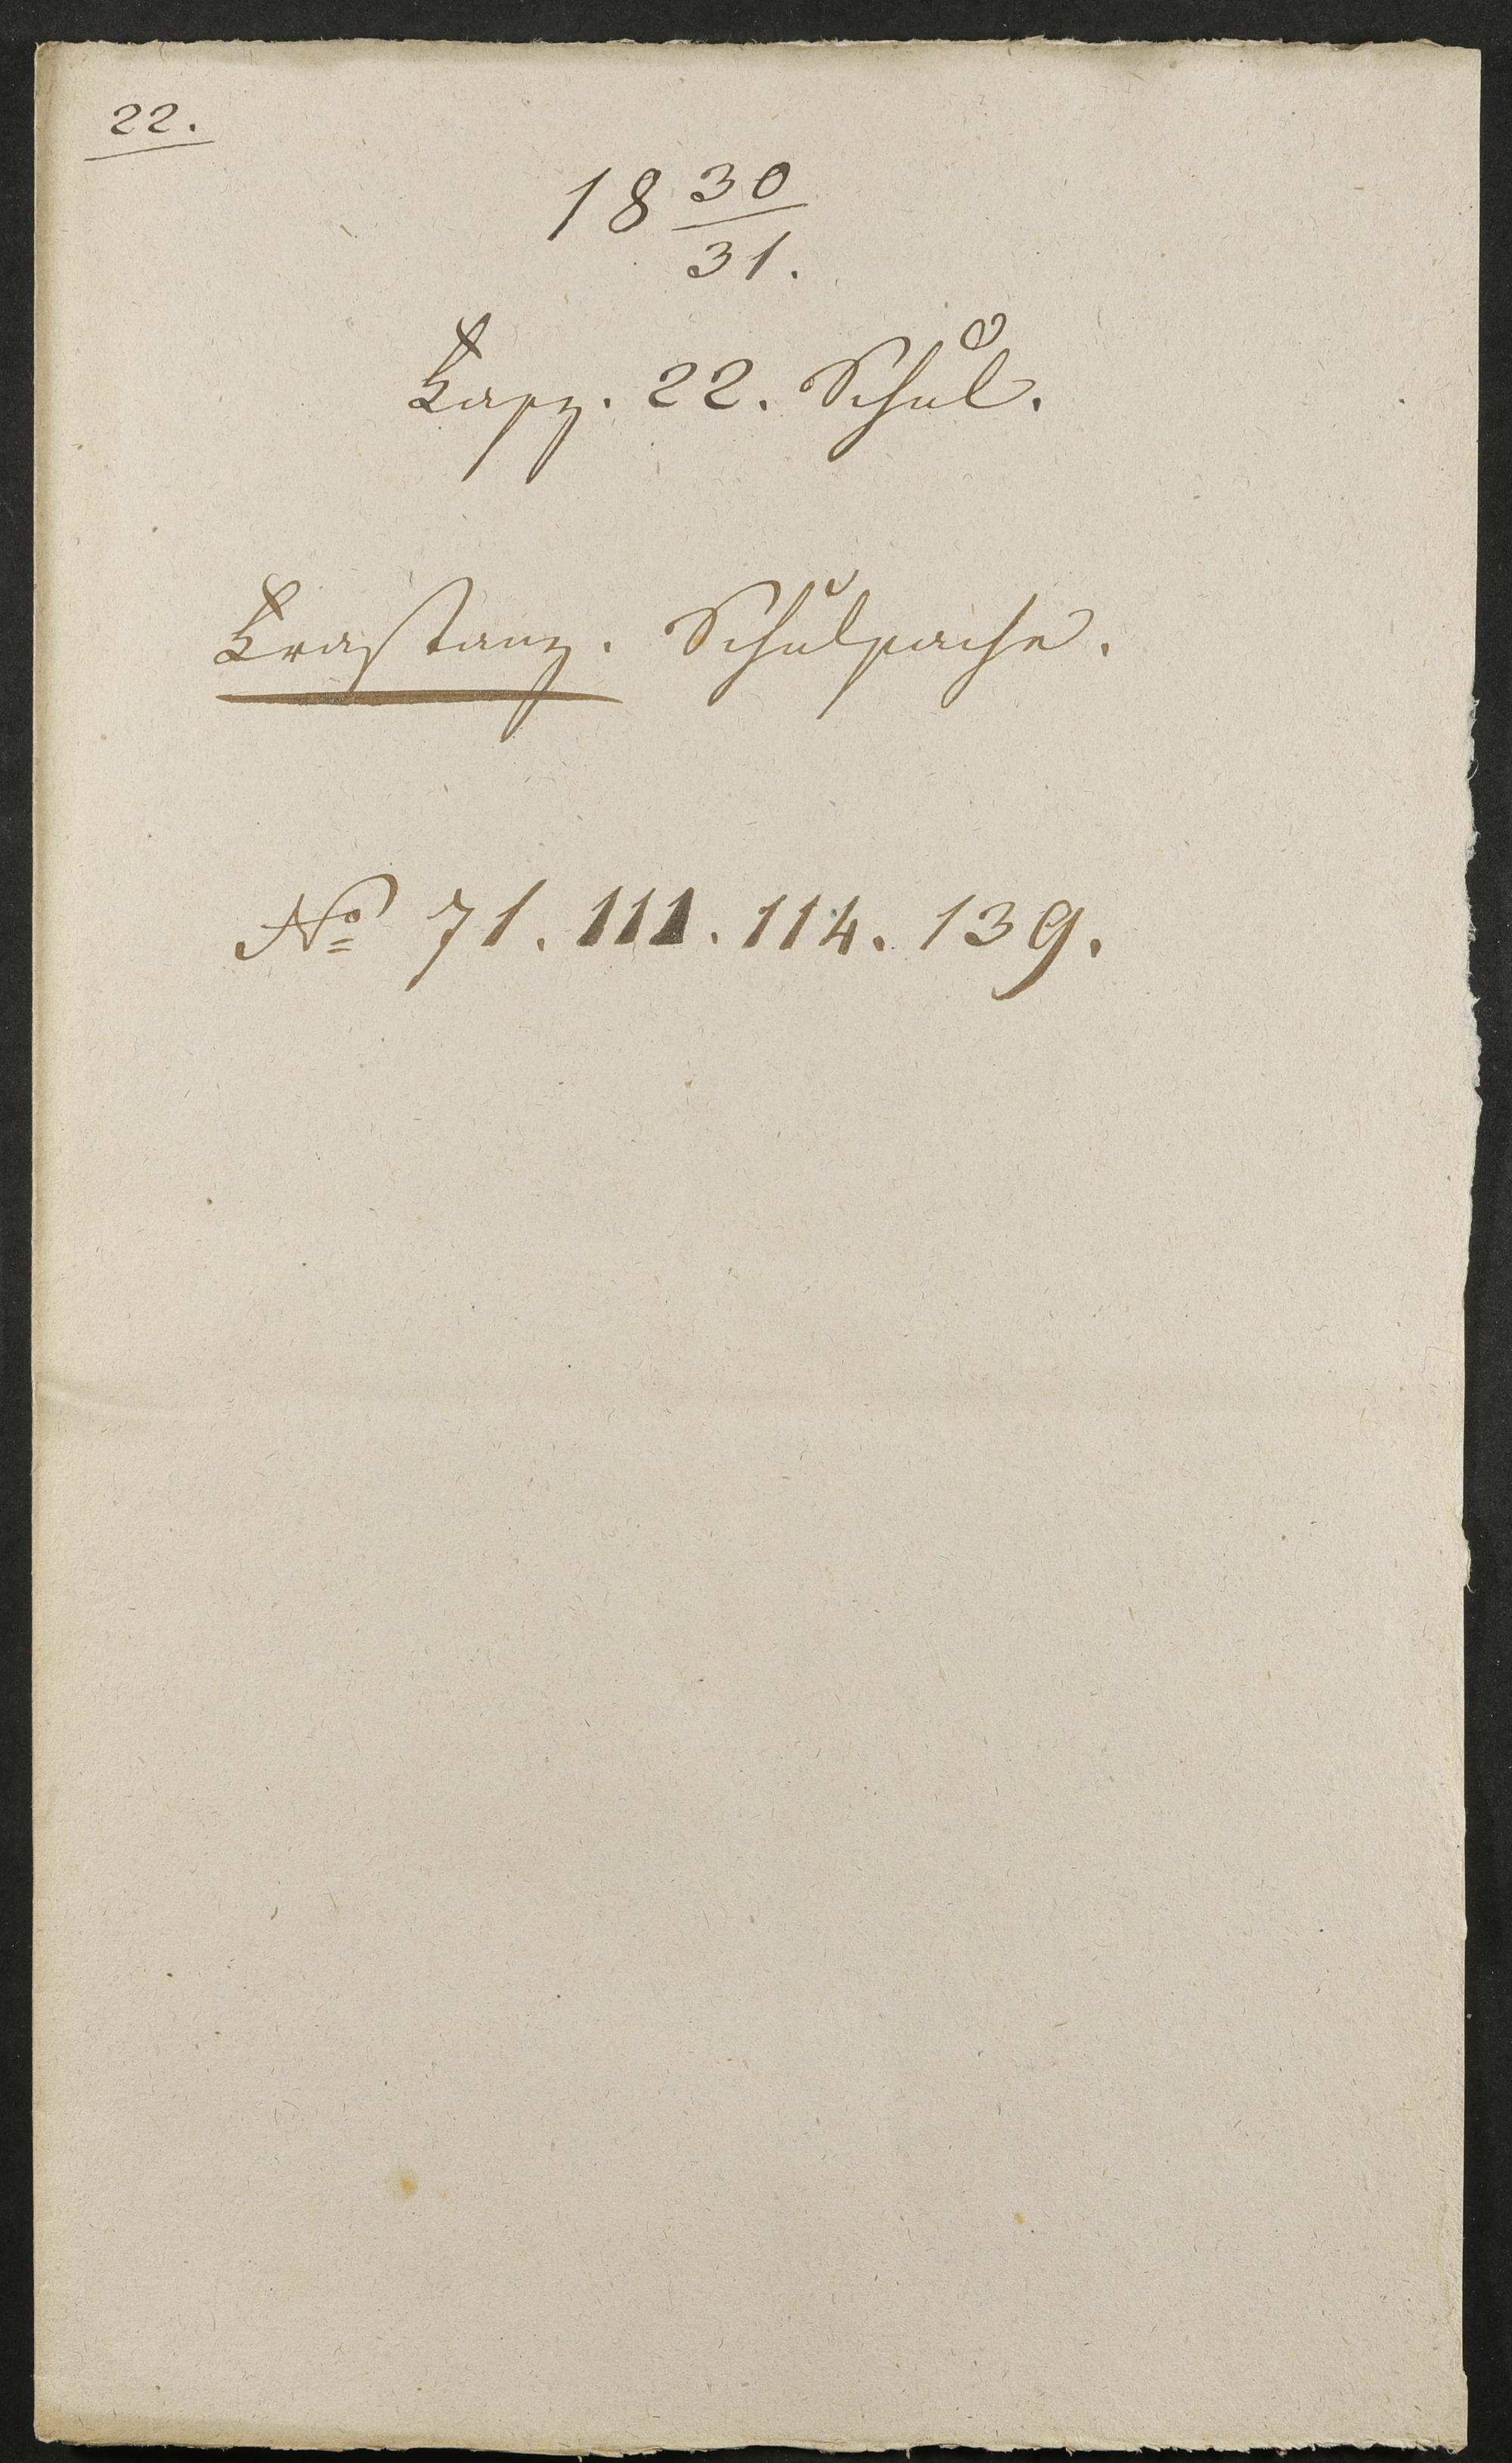 22.
18 30
31.
Fasz. 22. Schul.
Frastanz. Schulsache.
No 71. 111. 114. 139.